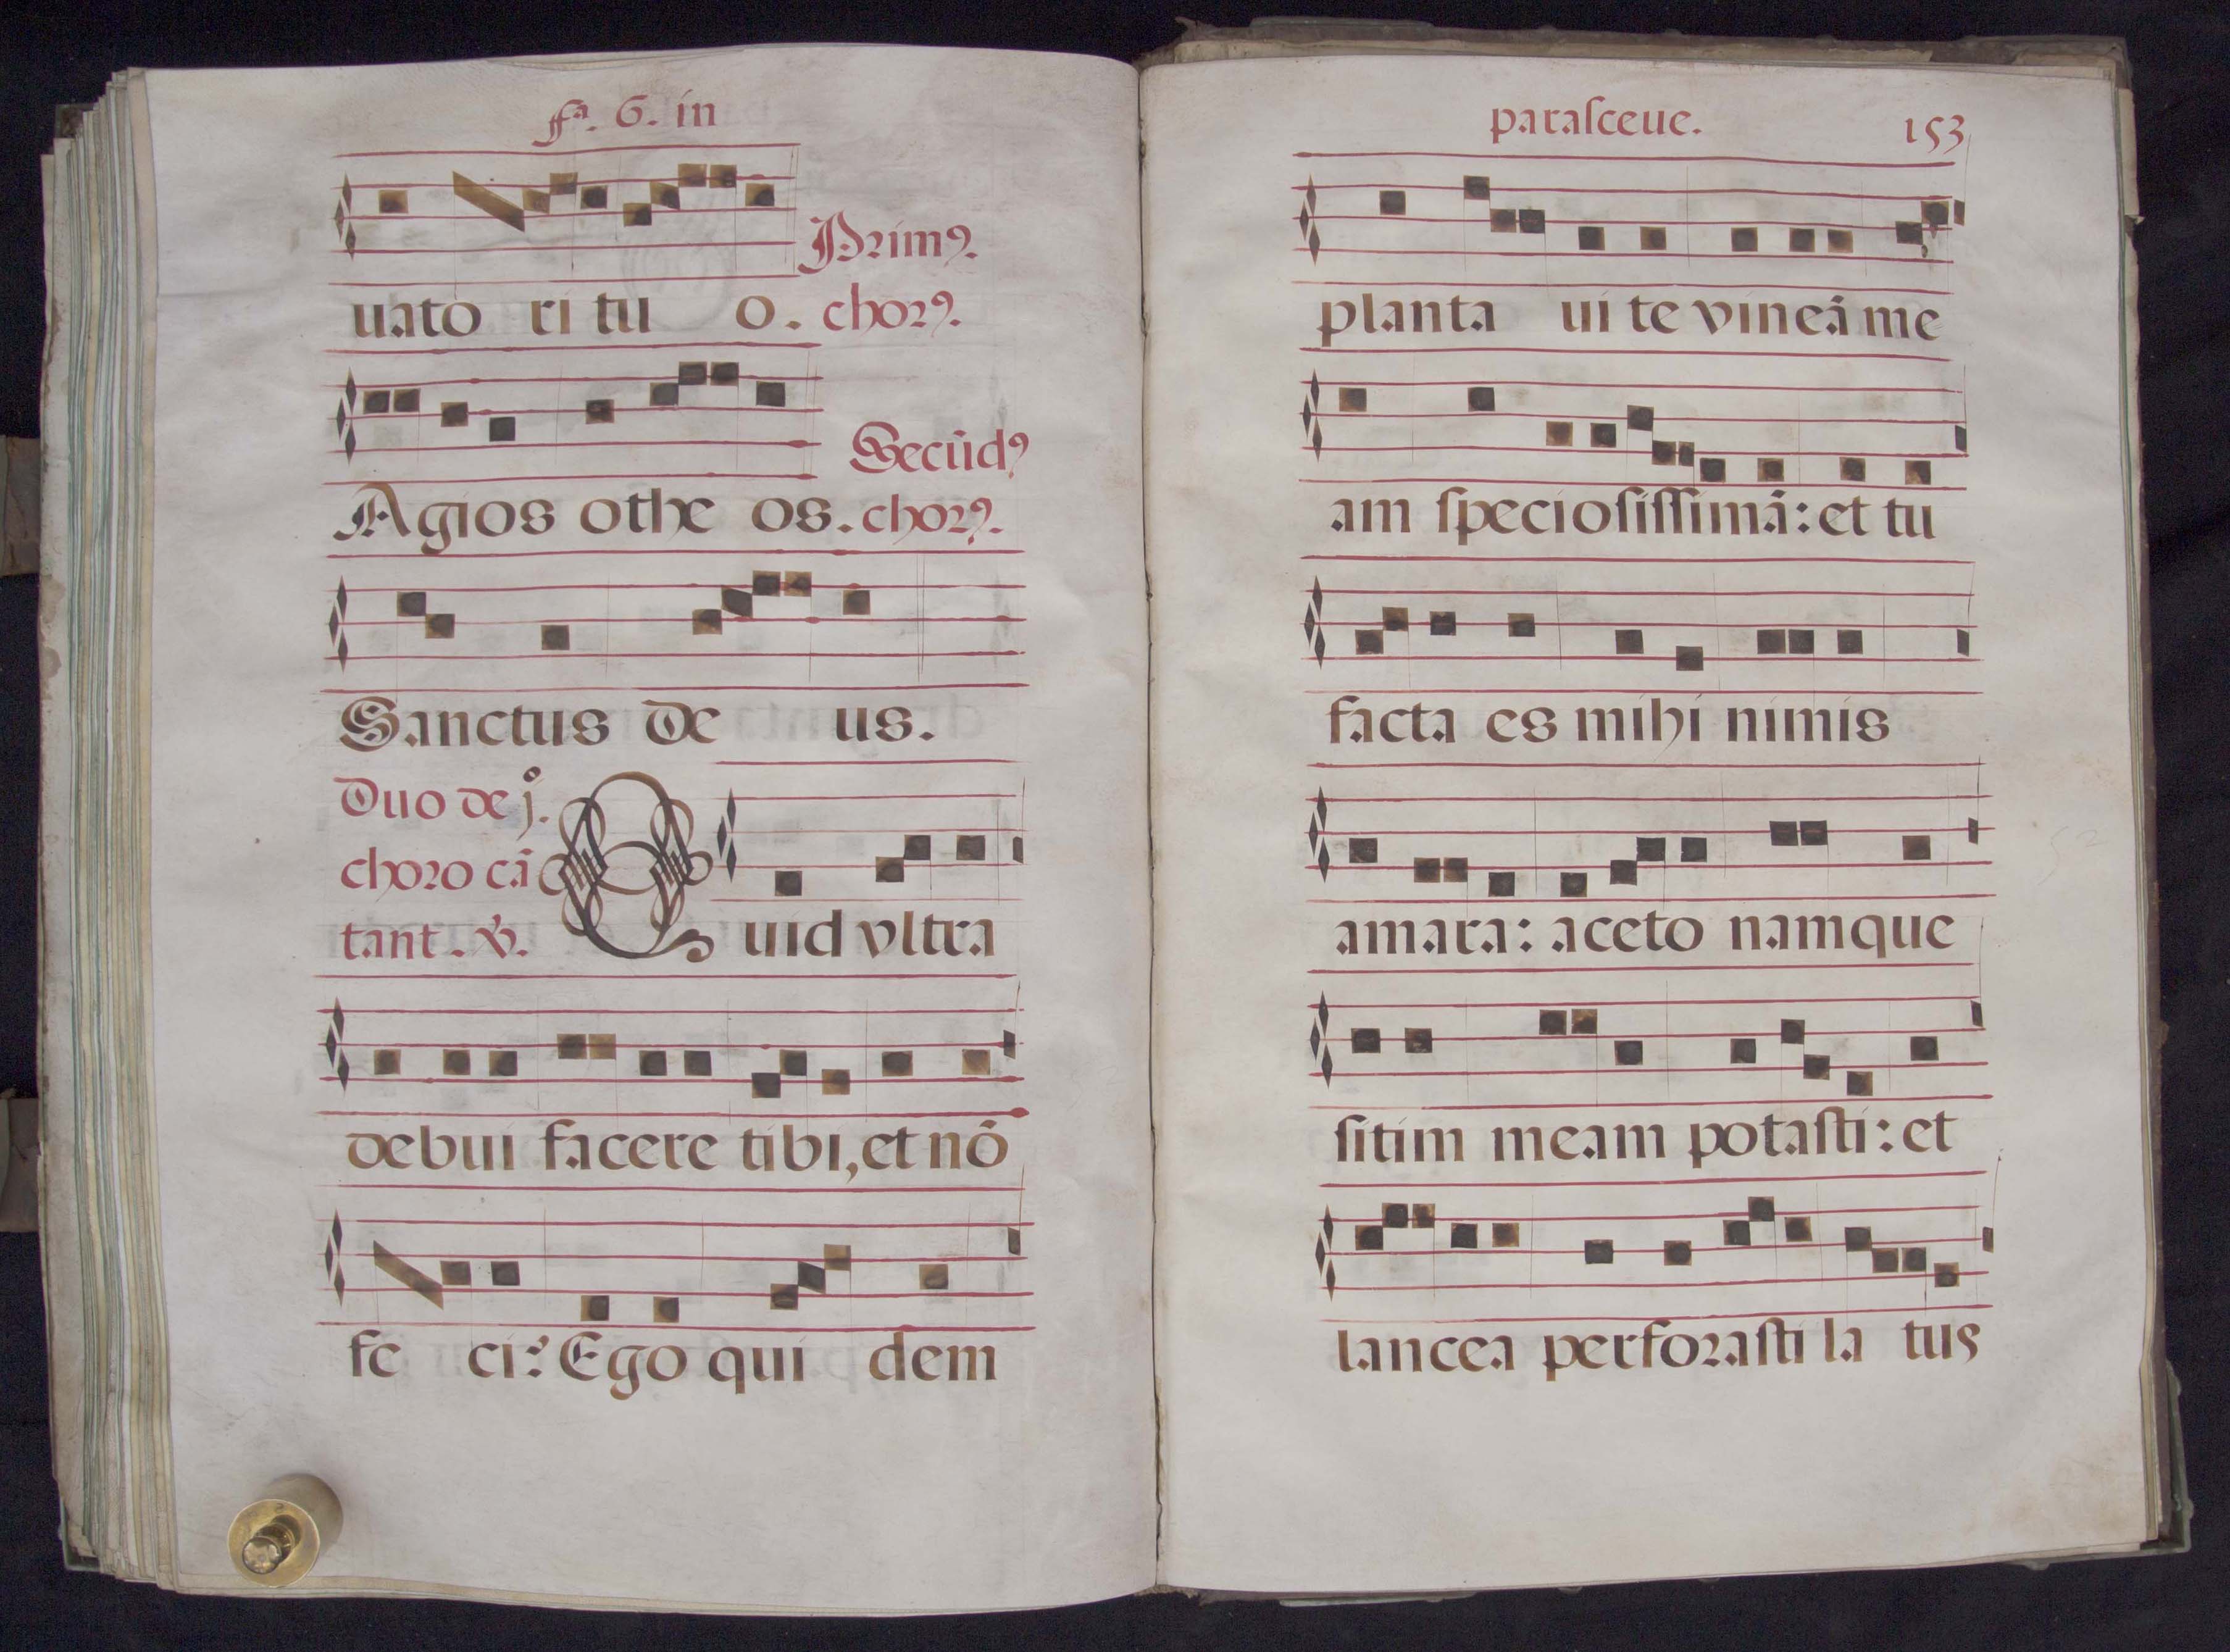 fª. 6. in
Primꝰ.
uato ri tu o. chorꝰ.
Secūdꝰ
Agios othe os. chorꝰ.
Sanctus De us.
Duo de jº.
choro cā
tant. ℣. Quid vltra
debui facere tibi, et nō
fe ci? Ego qui dem
paraſceue. 153
planta ui te vineā me
am ſpecioſiſſimā: et tu
facta es mihi nimis
amara: aceto namque
ſitim meam potaſti: et
lancea perforaſti la tus